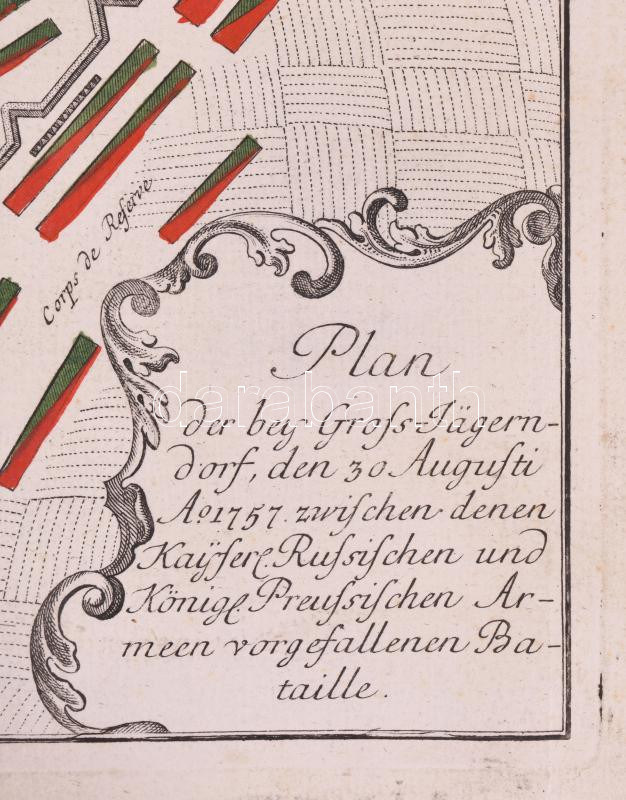 Corps de Reſerve
Plan
der bey Groſs-Jägern-
dorf, den 30 Auguſti
Ao. 1757. zwiſchen denen
Kaÿſerl. Ruſsiſchen und
Königl. Preuſsiſchen Ar-
meen vorgefallenen Ba-
taille.
darabanth